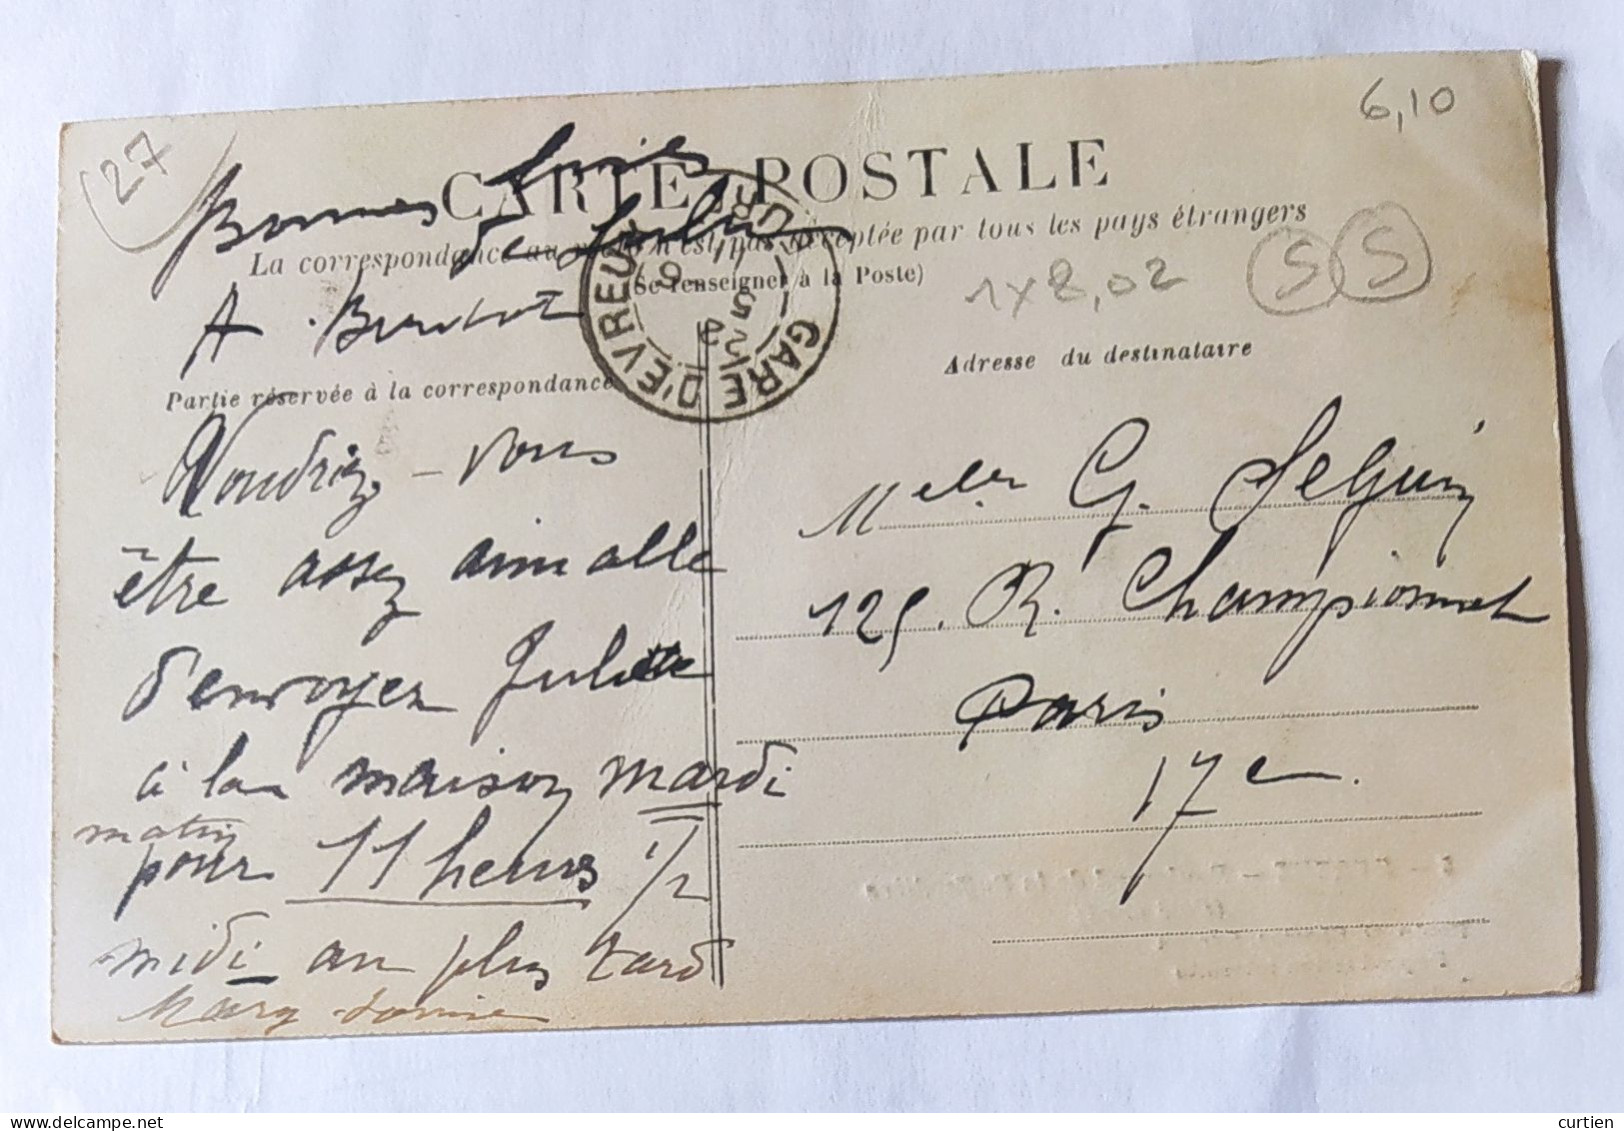 27
6,10
Bonnes
de
CARTE POSTALE
La correspondance au n'est pas acceptée par tous les pays étrangers
(Se renseigner à la Poste)
1x8,02
S S
A
GARE D'EVREUX
Partie réservée à la correspondance
Adresse du destinataire
Voudriez-vous
être assez aimable
d'envoyer Juliette
à la maison mardi
matin
pour 11 heures 1/2
midi au plus tard
Mary
Melle G. Seguin
125. R. Championnet
Paris
17e.
curtien